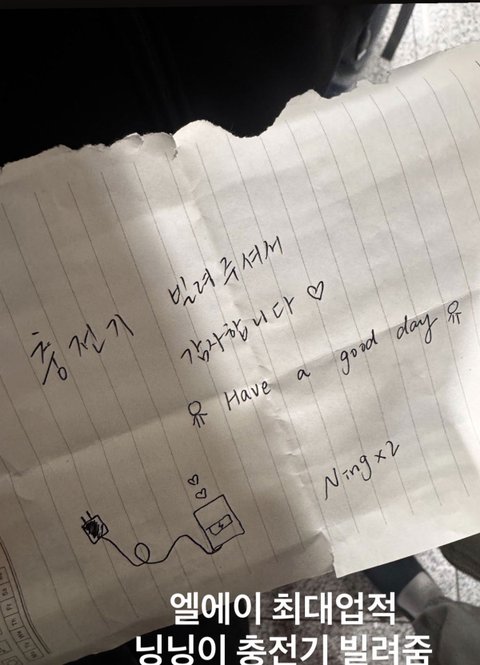 충전기 빌려주셔서
감사합니다 ♡
Have a good day
Ning x2
엘에이 최대업적
닝닝이 충전기 빌려줌